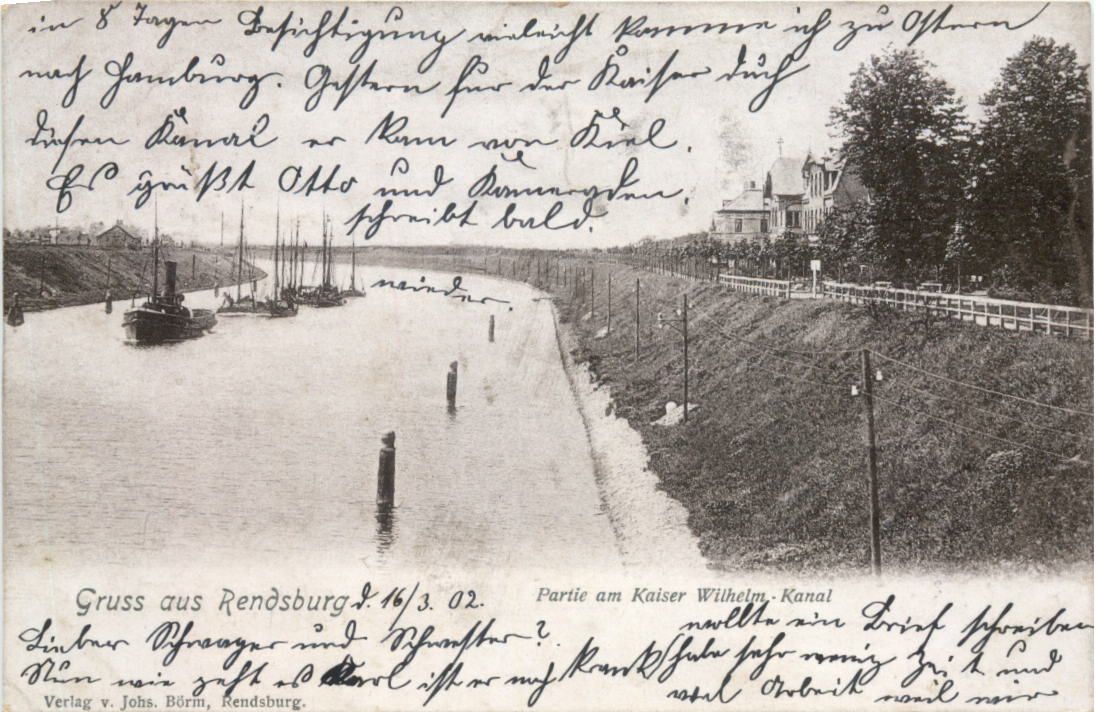 in 8 Tagen Besichtigung vieleicht komme ich zu Ostern
nach Hamburg. Gestern fur der Kaiser duch
diesen Kanal er kam von Kiel.
Es grüßt Otto und Kameraden.
schreibt bald.
wieder
Gruss aus Rendsburg d. 16/3. 02.
Partie am Kaiser Wilhelm-Kanal
Lieber Schwager und Schwester?
Nun wie geht es Karl ist er noch krank
wollte ein Brief schreiben
habe sehr wenig Zeit und
viel Arbeit weil wir
Verlag v. Johs. Börm, Rendsburg.